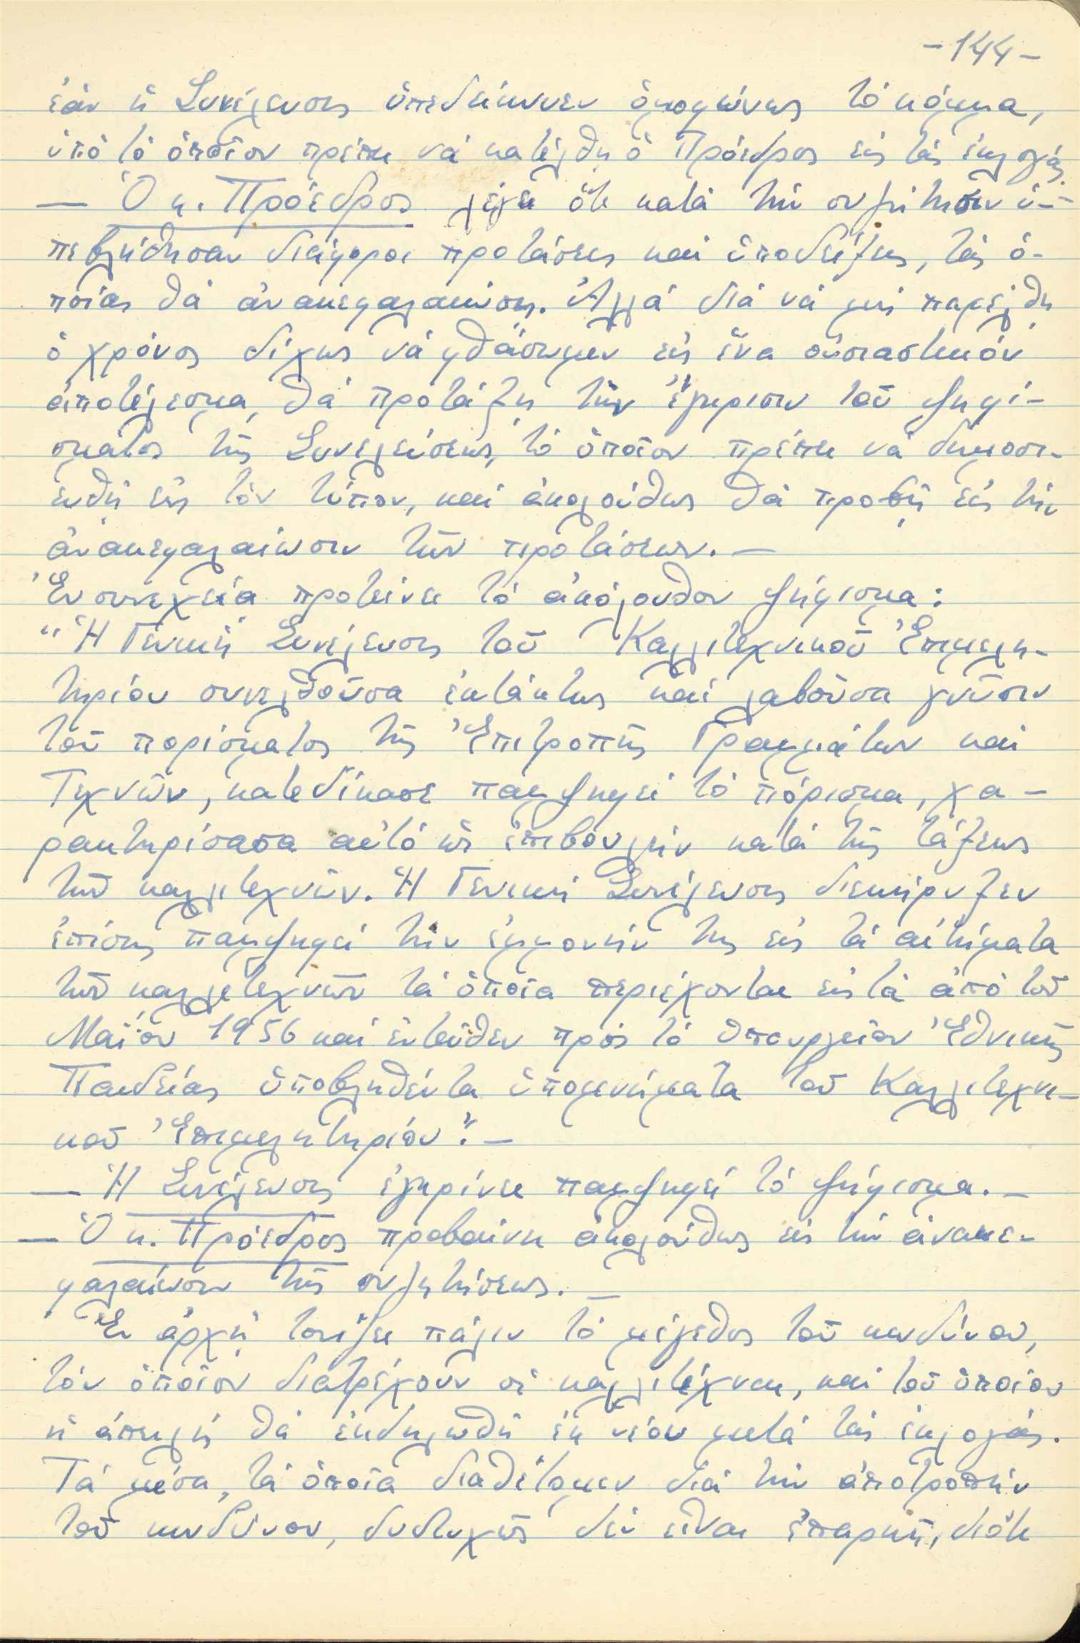 -144-
ἐὰν ἡ Συνέλευσις ὑπεδείκνυεν ὁμοφώνως τὸ κόμμα,
ὑπὸ τὸ ὁποῖον πρέπει νὰ κατέλθῃ ὁ Πρόεδρος εἰς τὰς ἐκλογάς.
— Ὁ κ. Πρόεδρος λέγει ὅτι κατὰ τὴν συζήτησιν ὑ-
πεβλήθησαν διάφοροι προτάσεις καὶ ὑποδείξεις, τὰς ὁ-
ποίας θὰ ἀνακεφαλαιώσῃ. Ἀλλὰ διὰ νὰ μὴ παρέλθῃ
ὁ χρόνος δίχως νὰ φθάσωμεν εἰς ἕνα οὐσιαστικὸν
ἀποτέλεσμα, θὰ προτάξῃ τὴν ἔγκρισιν τοῦ ψηφί-
σματος τῆς Συνελεύσεως, τὸ ὁποῖον πρέπει νὰ δημοσι-
ευθῇ εἰς τὸν τύπον, καὶ ἀκολούθως θὰ προβῇ εἰς τὴν
ἀνακεφαλαίωσιν τῶν προτάσεων. —
Ἐν συνεχείᾳ προτείνει τὸ ἀκόλουθον ψήφισμα:
"Ἡ Γενικὴ Συνέλευσις τοῦ Καλλιτεχνικοῦ Ἐπιμελη-
τηρίου συνελθοῦσα ἐκτάκτως καὶ λαβοῦσα γνῶσιν
τοῦ πορίσματος τῆς Ἐπιτροπῆς Γραμμάτων καὶ
Τεχνῶν, κατεδίκασε παμψηφεὶ τὸ πόρισμα, χα-
ρακτηρίσασα αὐτὸ ὡς ἐπιβουλὴν κατὰ τῆς τάξεως
τῶν καλλιτεχνῶν. Ἡ Γενικὴ Συνέλευσις διεκήρυξεν
ἐπίσης παμψηφεὶ τὴν ἐμμονήν της εἰς τὰ αἰτήματα
τῶν καλλιτεχνῶν τὰ ὁποῖα περιέχονται εἰς τὰ ἀπὸ τοῦ
Μαΐου 1956 καὶ ἐντεῦθεν πρὸς τὸ Ὑπουργεῖον Ἐθνικῆς
Παιδείας ὑποβληθέντα ὑπομνήματα τοῦ Καλλιτεχνι-
κοῦ Ἐπιμελητηρίου". —
— Ἡ Συνέλευσις ἐγκρίνει παμψηφεὶ τὸ ψήφισμα. —
— Ὁ κ. Πρόεδρος προβαίνει ἀκολούθως εἰς τὴν ἀνακε-
φαλαίωσιν τῆς συζητήσεως. —
Ἐν ἀρχῇ τονίζει πάλιν τὸ μέγεθος τοῦ κινδύνου,
τὸν ὁποῖον διατρέχουν οἱ καλλιτέχναι, καὶ τοῦ ὁποίου
ἡ ἀπειλὴ θὰ ἐκδηλωθῇ ἐκ νέου μετὰ τὰς ἐκλογάς.
Τὰ μέσα, τὰ ὁποῖα διαθέτομεν διὰ τὴν ἀποτροπὴν
τοῦ κινδύνου, δυστυχῶς δὲν εἶναι ἐπαρκῆ, διότι